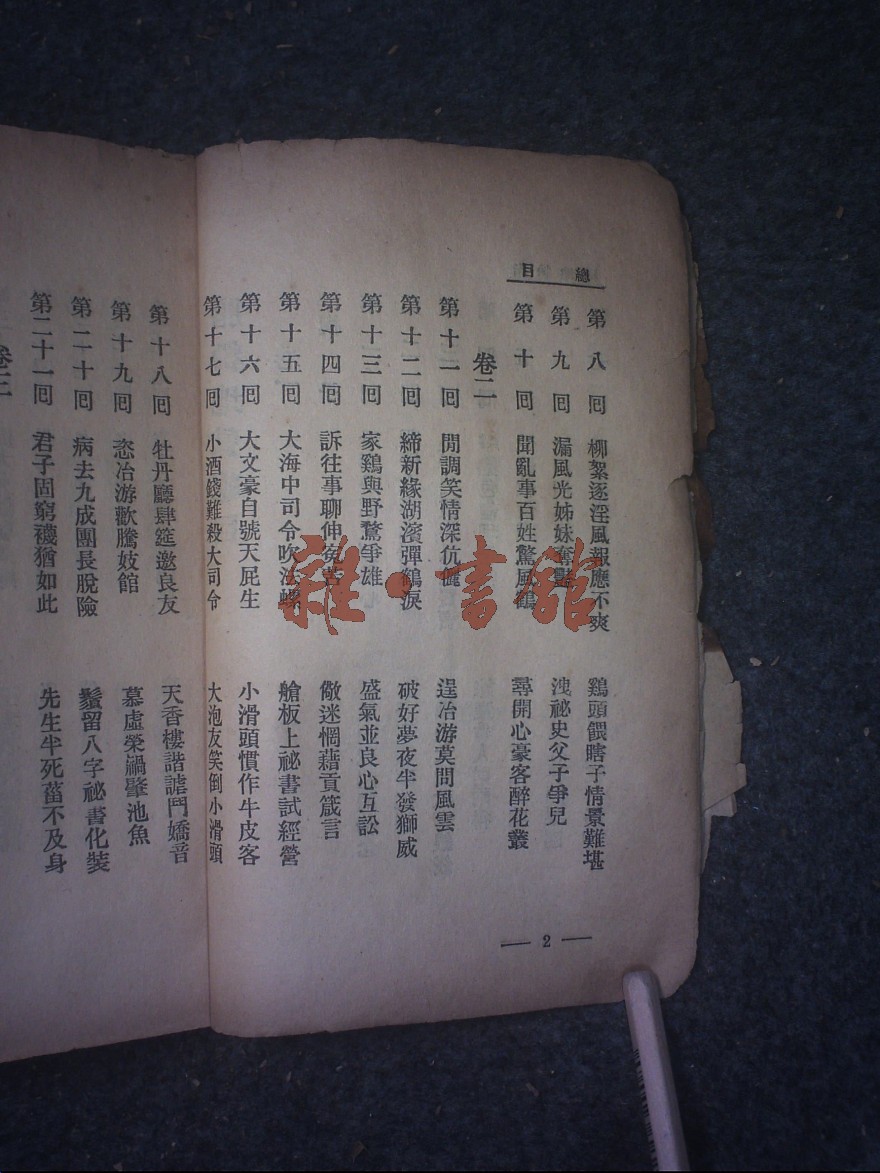 總目
第八回 柳絮逐淫風報應不爽 鷄頭餵瞎子情景難堪
第九回 漏風光姊妹奪豔 洩祕史父子爭兒
第十回 聞亂事百姓驚風鶴 尋開心豪客醉花叢
卷二
第十一回 閒調笑情深伉儷 逞冶游莫問風雲
第十二回 締新緣湖濱彈鶴淚 破好夢夜半發獅威
第十三回 家鷄與野鶩爭雄 盛氣並良心互訟
第十四回 訴往事聊伸宛苦 儆迷惘藉貢箴言
第十五回 大海中司令吹法螺 艙板上祕書試經營
第十六回 大文豪自號天屁生 小滑頭慣作牛皮客
第十七回 小酒錢難殺大司令 大泡友笑倒小滑頭
第十八回 牡丹廳肆筵邀良友 天香樓諧謔鬥嬌音
第十九回 恣冶游歡騰妓館 慕虛榮禍肇池魚
第二十回 病去九成團長脫險 鬚留八字祕書化裝
第二十一回 君子固窮襪猶如此 先生半死菑不及身
卷三
2
雜·書館